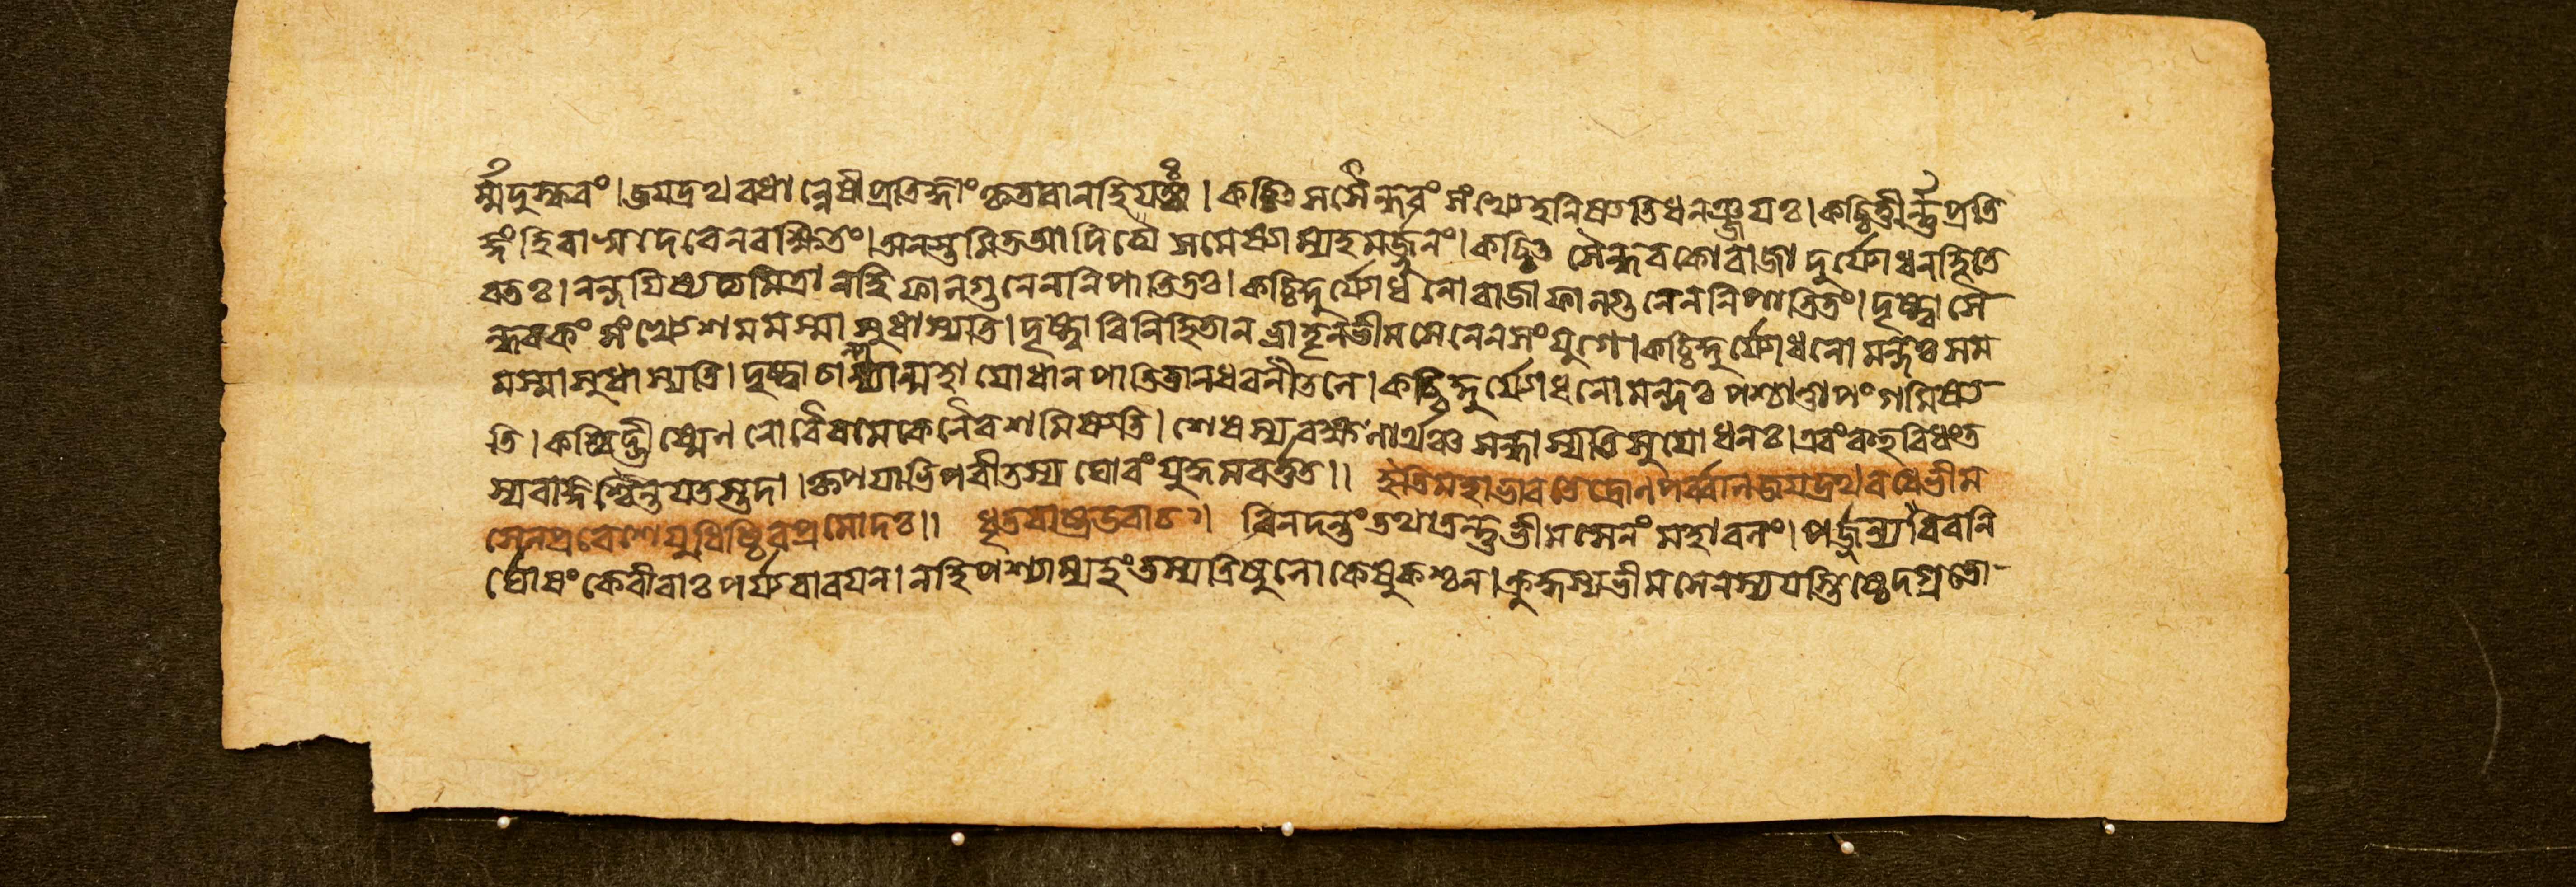 র্ম্মদুস্করং।জয়দ্রথবধান্বেষী প্রতিজ্ঞাং কৃতবানহিযত্তাং। কচ্চিৎসসৈন্ধবং সংখ্যেহনিষ্যতিধনঞ্জয়ঃ।কচ্চিত্তীর্ন্নপ্রতি
জ্ঞংহিবাসুদেবেনরক্ষিতং।অনস্তমিতআদিত্যে সমেষ্যাম্যহমর্জ্জুনং।কচ্চিৎ সৈন্ধবকোরাজা দুর্য্যোধনহিতে
রতঃ।নন্দয়িষ্যত্যমিত্রানহিফালগুনেননিপাতিতঃ।কচ্চিদ্দুর্য্যোধনোরাজাফালগুনেননিপাতিতং।দৃষ্ট্বাসৈ
ন্ধবকং সংখ্যেশমমস্মাসুধাস্যতি।দৃষ্ট্বাবিনিহিতানভ্রাতৄনভীমসেনেনসংযুগে।কচ্চিদ্দুর্য্যোধনোমন্দঃসম
মস্মাসুধাস্যতি।দৃষ্ট্বাচান্যান্মহাযোধানপাতিতানধরনীতলে।কচ্চিদ্দুর্য্যোধনোমন্দঃপশ্চাত্তাপংগমিষ্য
তি।কচ্চিদ্ভীষ্মেননোবৈরমেকেনৈবশমিষ্যতি।শেষস্যরক্ষনার্থঞ্চসন্ধাস্যতিসুযোধনঃ।এবংবহুবিধংত
স্যরাজ্ঞশ্চিন্তয়তস্তদা।কৃপয়াভিপরীতস্যঘোরংযুদ্ধমবর্ত্তত॥ ইতিমহাভারতেদ্রোনপর্ব্বানিজয়দ্রথবধেভীম
সেনপ্রবেশেযুধিষ্ঠিরপ্রমোদঃ॥ ধৃতরাষ্ট্রউবাচ॥ নিনদন্তংতথাতন্তুভীমসেনং মহাবলং।পর্জ্জন্যমিবনি
র্ঘোষংকেবীরাঃপর্য্যবারয়ন।নহিপশ্যাম্যহংতস্যত্রিষুলোকেষুকশ্চন।ক্রুদ্ধস্যভীমসেনস্যযস্তিষ্ঠেদগ্রতো